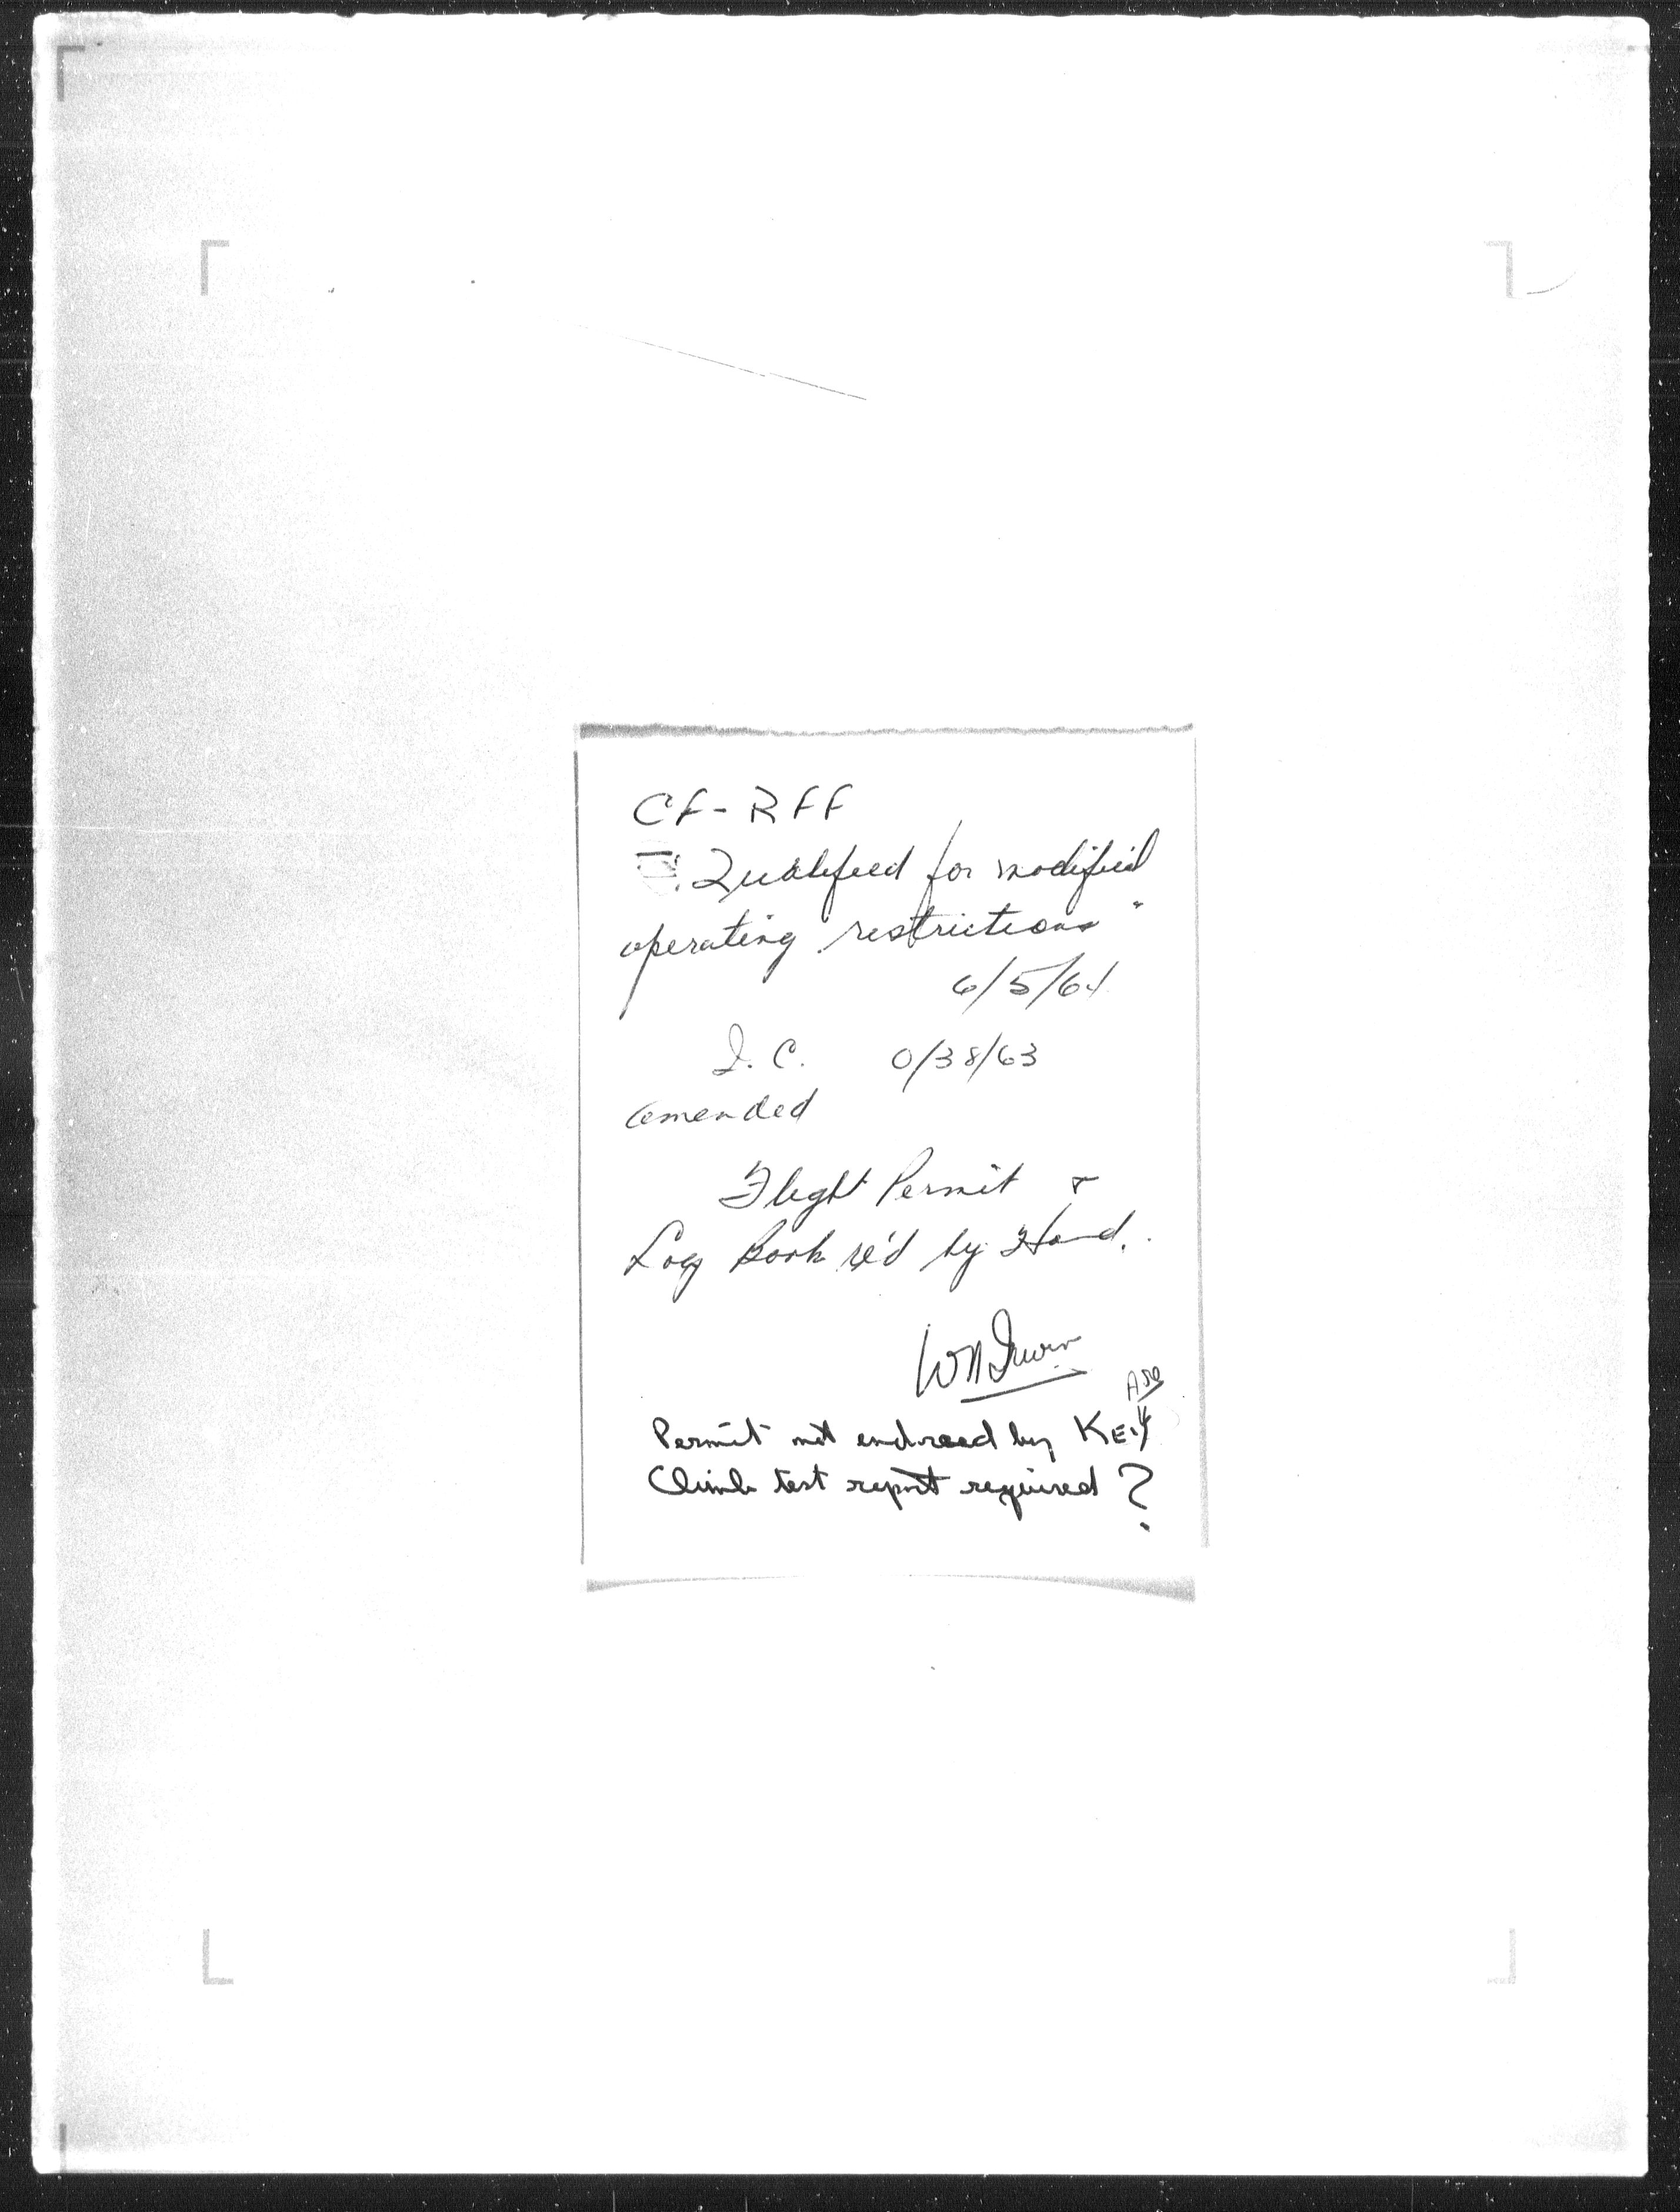 CF-RFF
Qualified for modified
operating restrictions"
6/5/64
I.C. 0/38/63
amended
Flight Permit &
Log Book re'd by Hand.
WN Irwin
Permit not endorsed by
Climb test report required ?